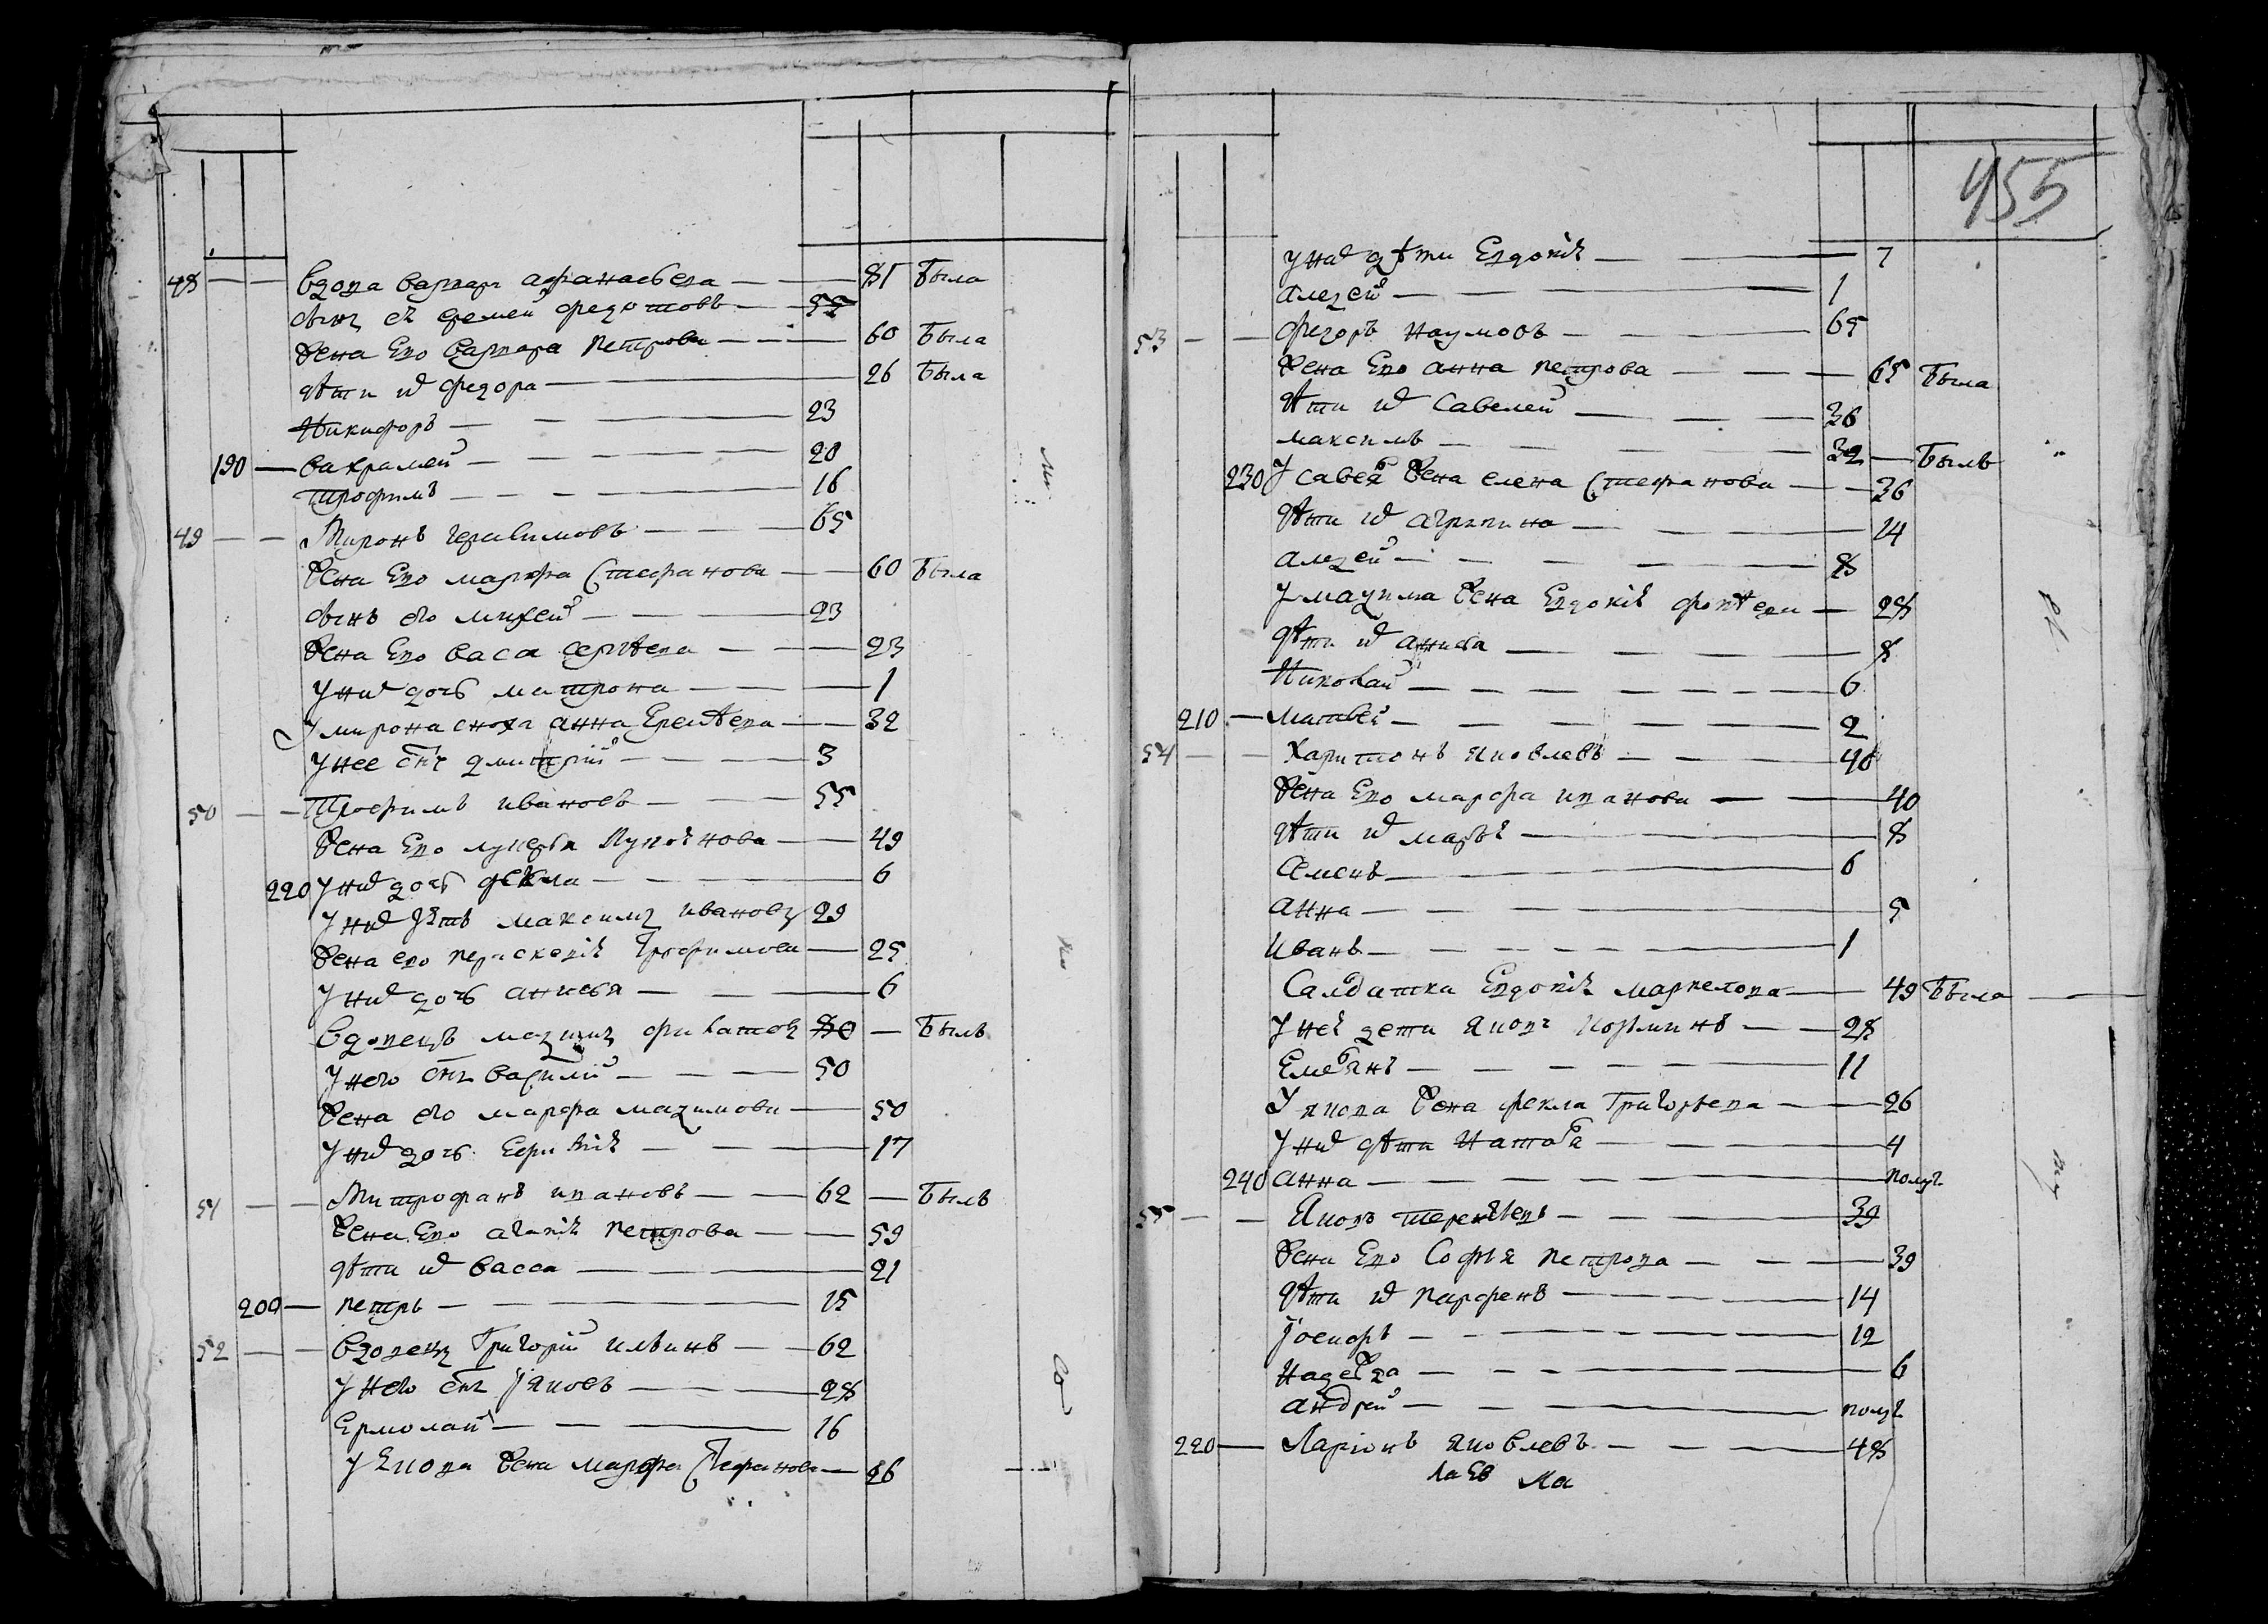 48 — — Вдова варвара афанасьева — — 81 Была
сынъ еѧ еремей федотовъ — 55
Жена Ево варвара петрова — — 60 Была
дѣти их федора — 26 Была
Никифоръ — 23
190 — вахрамей — 20
Трофимъ — 16
49 — — Миронъ герасимовъ — 65
Жена Ево марфа Стефанова — — 60 Была
сынъ его михей — 23
Жена Ево васа сергѣева — 23
У них дочь матрона — 1
У мирона сноха анна Еремѣева — 32
У нее снъ дмитрий — 3
50 — — Трофимъ ивановъ — 55
Жена Ево лукерья Лукоянова — 49
220 У них дочь фекла — 6
У них зять максимъ ивановъ 29
Жена ево парасковія Трофимова — 25
У них дочь анисья — 6
Вдовецъ мазимъ филатовъ 80 — Былъ
У него снъ василий — 50
Жена его марфа мазимова — 50
У них дочь — 17
51 — — Митрофанъ ивановъ — 62 — Былъ
Жена Ево агапія петрова — 59
дѣти их васса — 21
200 — петръ — 15
52 — — Вдовецъ Григорий ильинъ — 62
У него снъ яковъ — 28
Ермолай — 16
У Якова жена марфа Стефанова — 26
455
У них дѣти Евдокія — 7
алезей — 1
53 — — Федоръ наумовъ — 65
Жена Ево анна петрова — 65 Была
дѣти их савелей — 36
максимъ — 32 — Былъ
230 У савелья жена елена Стефанова — 36
дѣти их агрипина — 14
алезей — 8
У мазима жена Евдокія фокѣева — 28
дѣти их анисья — 8
Николай — 6
210 — матвей — 2
54 — — Харитонъ яковлевъ — 40
Жена Ево марфа иванова — 40
дѣти их марья — 8
Семенъ — 6
анна — 5
иванъ — 1
Салдатка Евдокія маркелова — 49 Была
У ней дети яковъ козминъ — 28
Емельянъ — 11
У якова жена фекла Григорьева — 26
У них дѣти Наталья — 4
240 анна — полуг
55 — — Яковъ терентьевъ — 39
Жена Ево Софья петрова — 39
дѣти их парфенъ — 14
Іосифъ — 12
надежда — 6
андрей — полуг
220 — Ларіонъ яковлевъ — 48
Ма